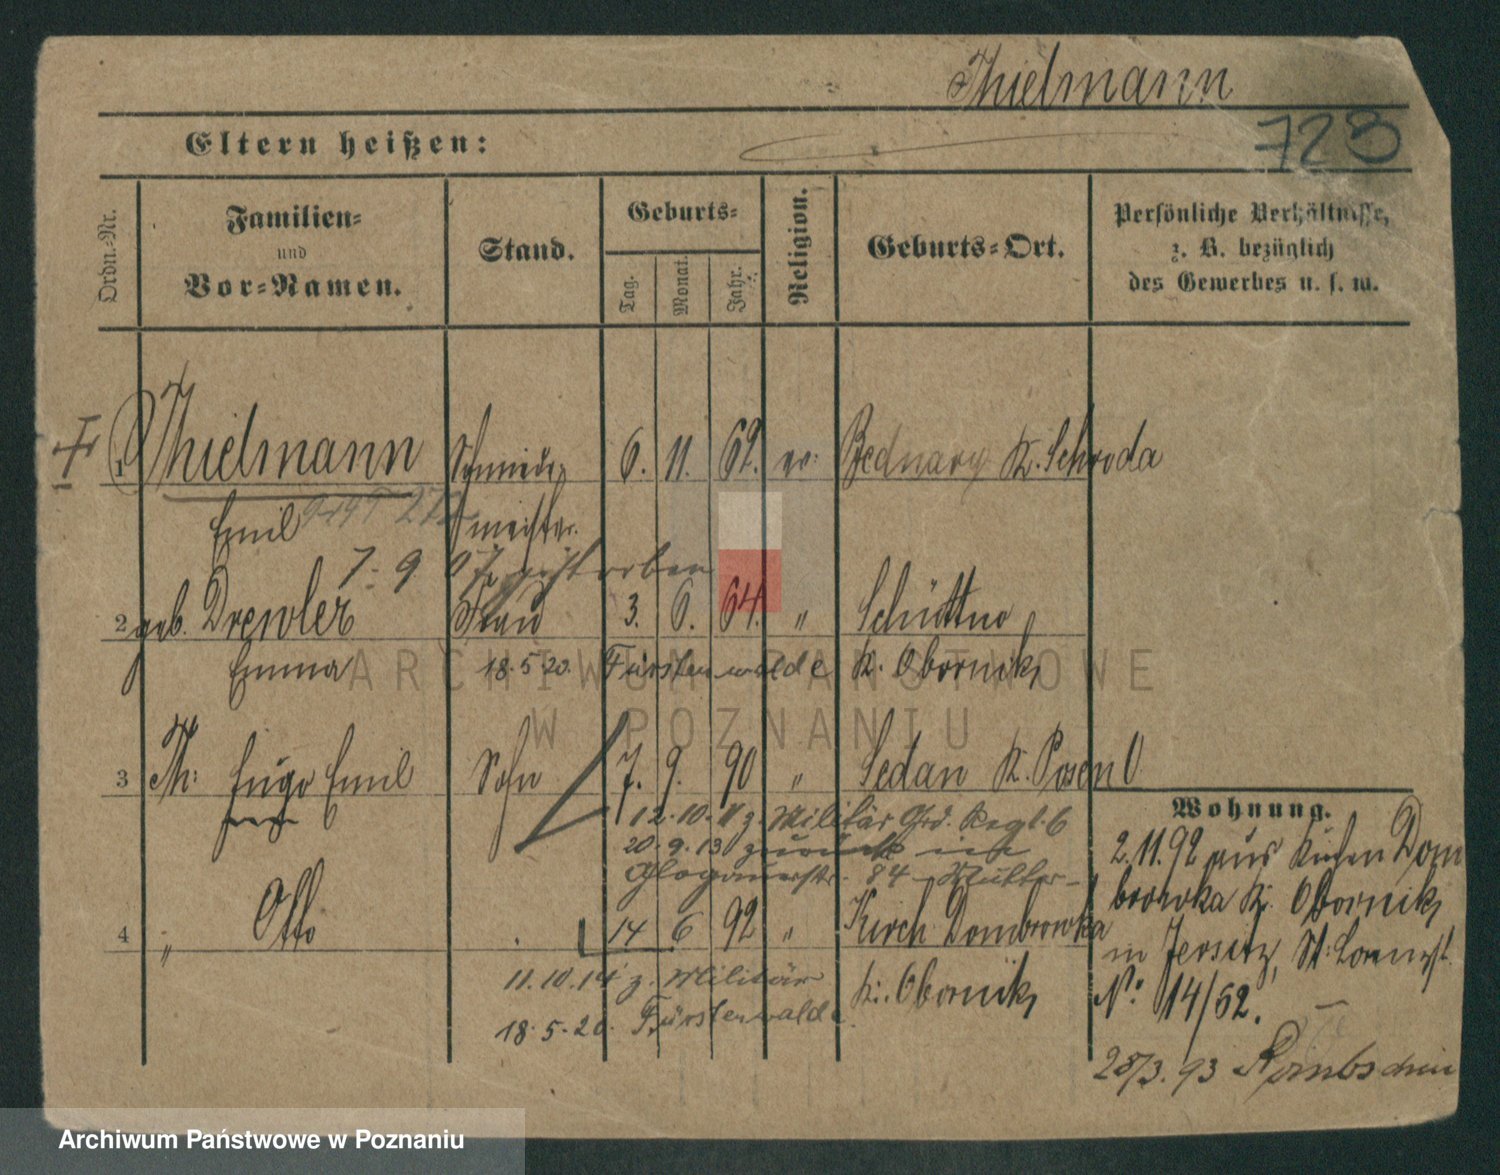 Thielmann
Eltern heißen:
728
Ordn.-Nr.
Familien-
und
Vor-Namen.
Stand.
Geburts-
Tag.
Monat.
Jahr.
Religion.
Geburts-Ort.
Persönliche Verhältnisse,
z. B. bezüglich
des Gewerbes u. s. w.
1 Thielmann Schmiede 6. 11. 62. ev: Bednary K. Schroda
Emil meister.
7. 9. 07. gestorben
2 geb. Drewler Frau 3. 6. 64. " Schüttno
Emma 18.5.20. Fürstenwalde K. Obornik
3 Th: Hugo Emil Sohn 7. 9. 90 " Sedan K. Posen O
12.10.11 z. Militär Grd. Regt. 6
20.9.13 zurück
Glogauerstr. 84 Mutter
4 " Otto 14 6 92 " Kirch Dombrowka
11.10.14 z. Militär K. Obornik
18.5.20. Fürstenwalde
Wohnung.
2.11.92 aus Kirchen Dom
browka K. Obornik
in Jersitz, St. Lorenzst.
No: 14/52.
28/3.93
ARCHIWUM PAŃSTWOWE
W POZNANIU
Archiwum Państwowe w Poznaniu